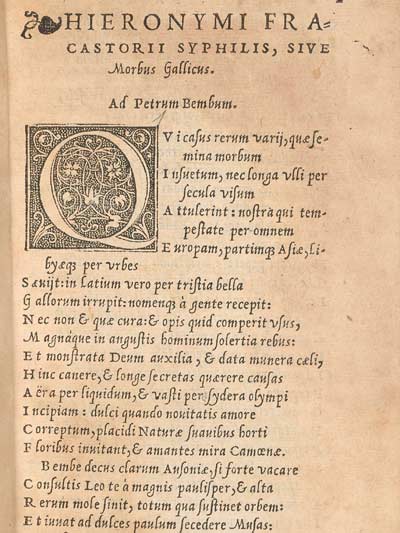 HIERONYMI FRA-
CASTORII SYPHILIS, SIVE
Morbus Gallicus.
Ad Petrum Bembum.
QVi casus rerum varij, quæ se-
mina morbum
Insuetum, nec longa vlli per
secula visum
Attulerint: nostra qui tem-
pestate per omnem
Europam, partimq́ue Asiæ, Li-
byæq́ue per vrbes
Sæuijt: in Latium vero per tristia bella
Gallorum irrupit: nomenq́ue à gente recepit:
Nec non & quæ cura: & opis quid comperit vsus,
Magnáque in angustis hominum solertia rebus:
Et monstrata Deum auxilia, & data munera cæli,
Hinc canere, & longe secretas quærere causas
Aëra per liquidum, & vasti per sydera olympi
Incipiam: dulci quando nouitatis amore
Correptum, placidi Naturæ suauibus horti
Floribus inuitant, & amantes mira Camœnæ.
Bembe decus clarum Ausoniæ, si forte vacare
Consultis Leo te à magnis paulisper, & alta
Rerum mole sinit, totum qua sustinet orbem:
Et iuuat ad dulces paulum secedere Musas: